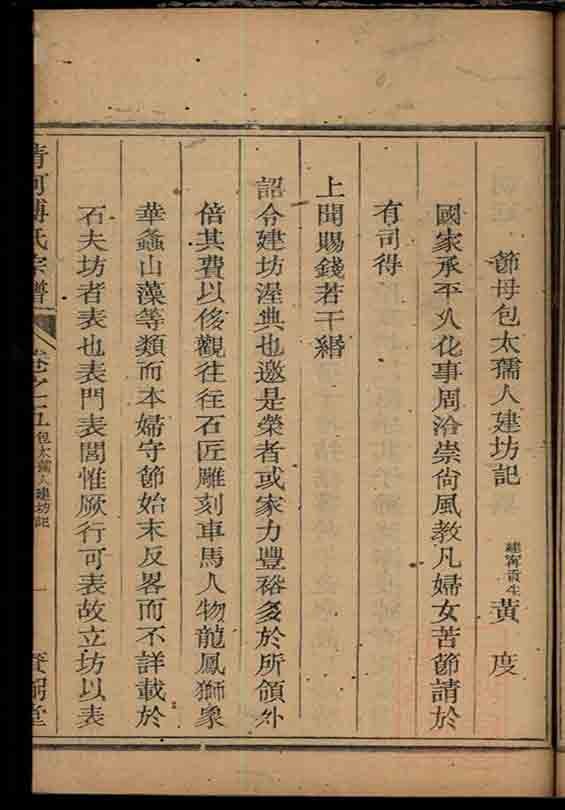 節母包太孺人建坊記 建寧貢生 黃度
國家承平久化事周洽崇尙風教凡婦女苦節請於
有司得
上聞賜錢若干緡
詔令建坊渥典也邀是榮者或家力豐裕多於所領外
倍其費以侈觀往往石匠雕刻車馬人物龍鳳獅象
華蠡山藻等類而本婦守節始末反畧而不詳載於
石夫坊者表也表門表閭惟厥行可表故立坊以表
清河傅氏宗譜 卷之五 包太孺人建坊記 一 賚弼堂